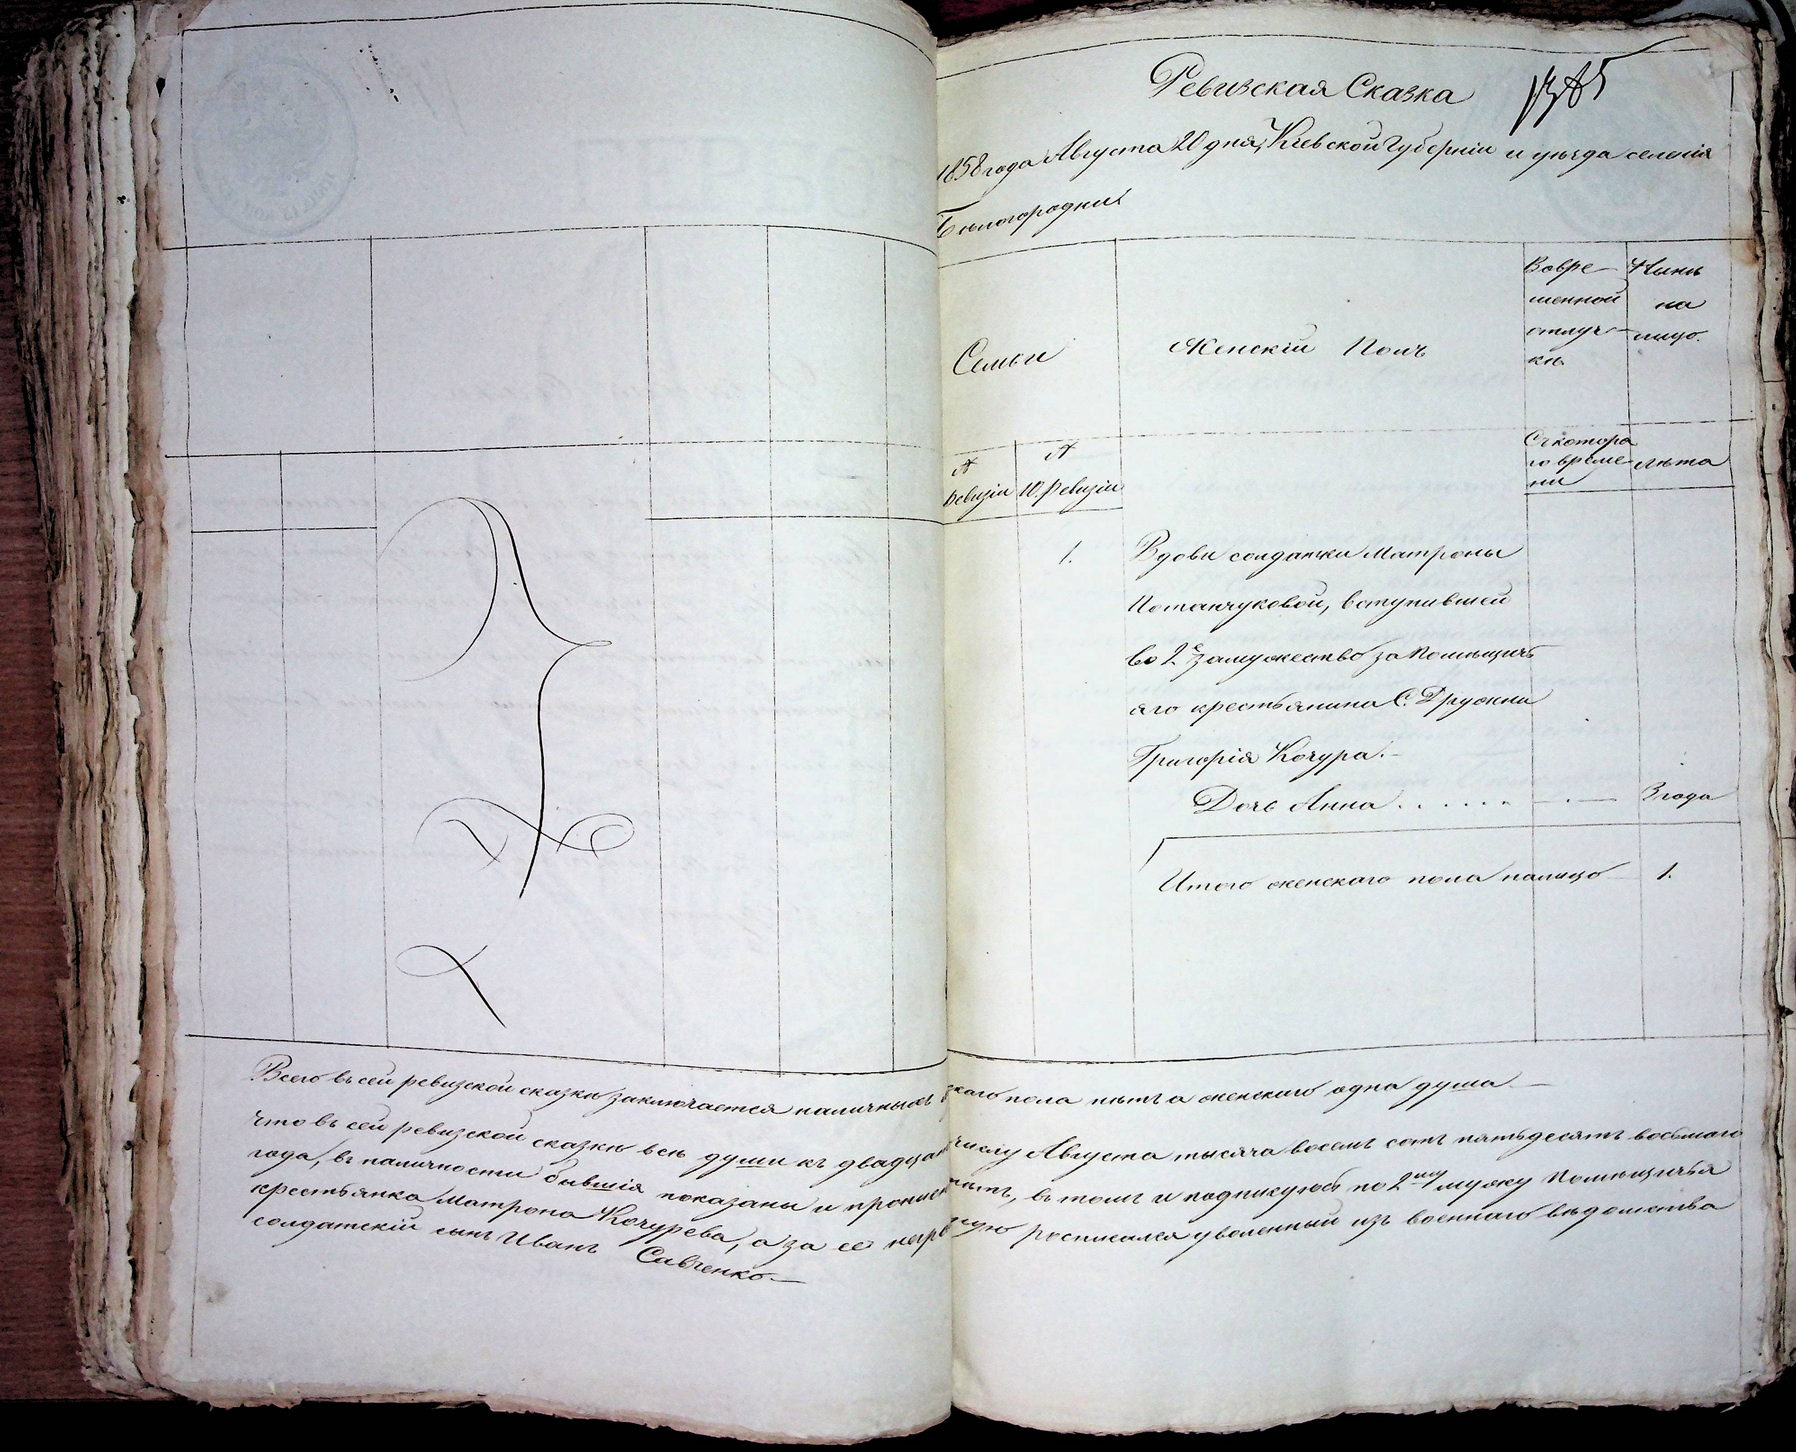 Ревизская Сказка
1858 года Августа 20 дня, Кіевской Губерніи и уѣзда селенія
Бѣлогородки
Семьи
Женскій Полъ
Во вре-
менной
отлуч-
кѣ
Нынѣ
на
лицо.
№
Ревизіи
№
10. Ревизіи
Съ котора
го време-
ни
Лѣта
1. Вдовы солдатки Матроны
Потапчуковой, вступившей
во 2е замужество за помѣщичь
яго крестьянина С. Дружни
Григорія Кочура.-
Дочь Анна . . . . . . — . — 3 года
Итого женскаго пола налицо 1.
Всего въ сей ревизской сказкѣ заключается наличныхъ скаго пола нѣтъ а женскаго одна душа —
что въ сей ревизской сказкѣ всѣ души къ двадцат числу Августа тысяча восемь сотъ пятьдесятъ восьмаго
года, въ наличности бывшія показаны и прописк нѣтъ, въ томъ и подписуюсь по 2му мужу Помѣщичья
крестьянка Матрона Кочурева, а за ее негр росписался уволенный изъ военнаго вѣдомства
солдатскій сынъ Иванъ Савченко —